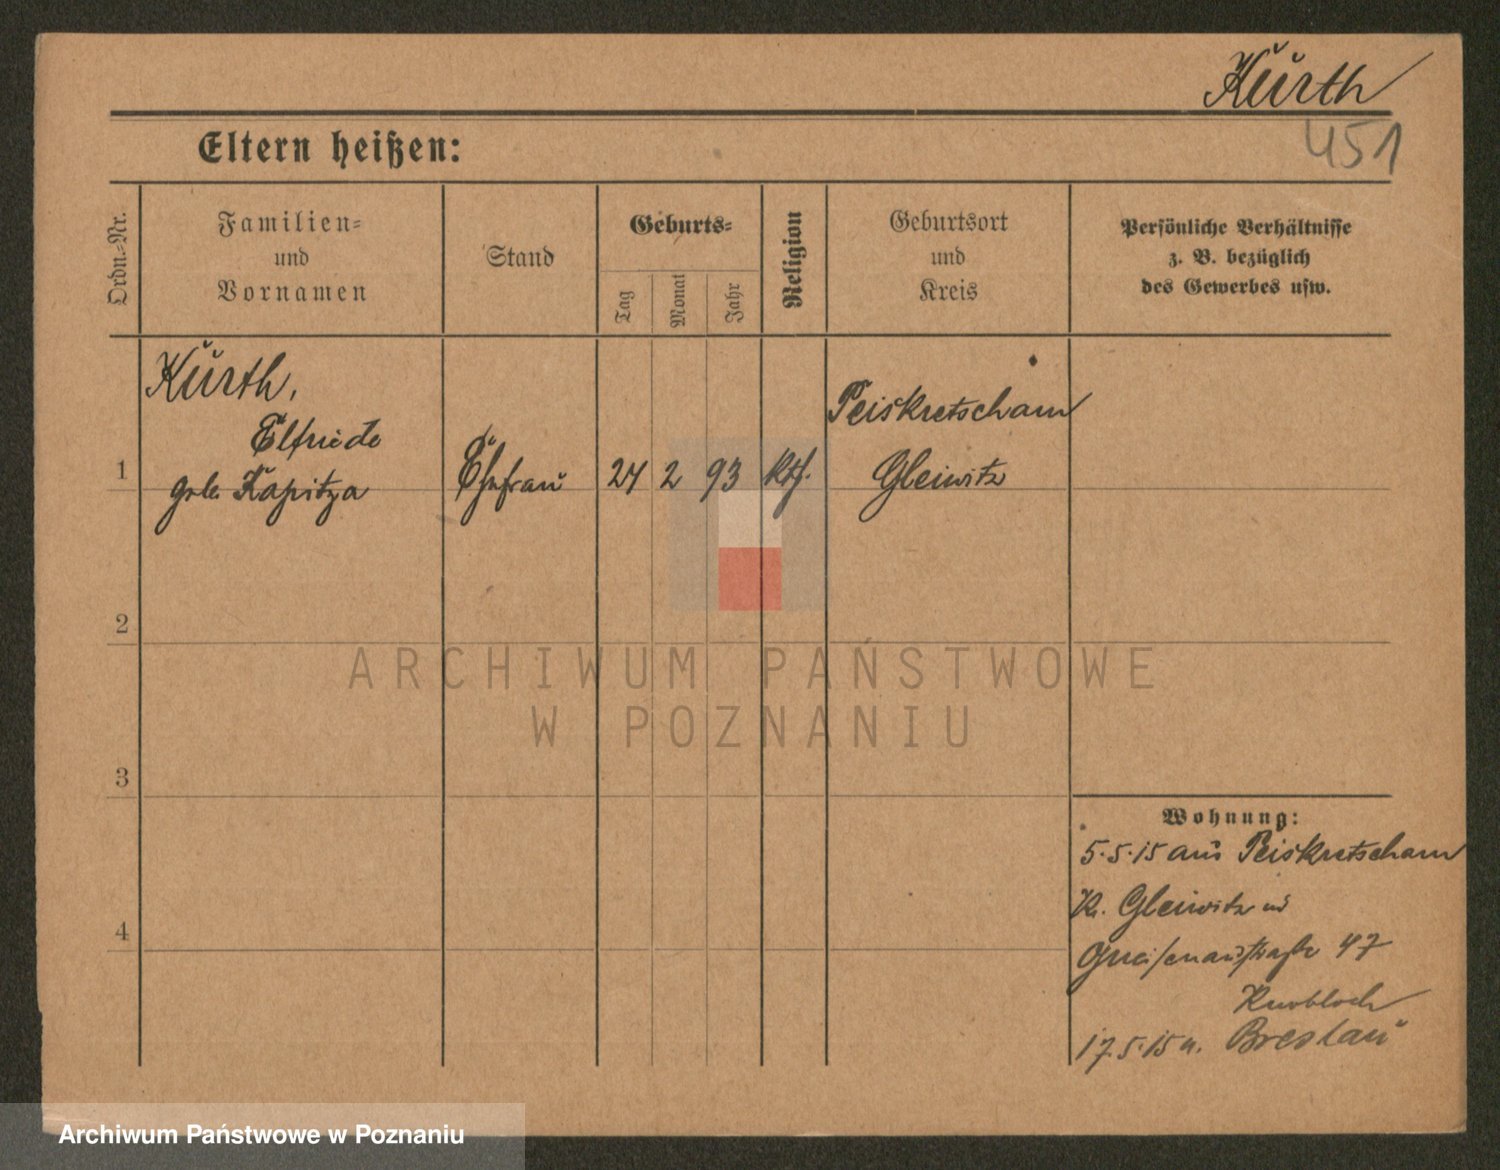 Kurth
451
Eltern heißen:
Ordn.-Nr.
Familien-
und
Vornamen
Stand
Geburts-
Tag
Monat
Jahr
Religion
Geburtsort
und
Kreis
Persönliche Verhältnisse
z. B. bezüglich
des Gewerbes usw.
Kurth,
Elfriede
geb. Kapitza
1
Ehefrau
24
2
93
kth.
Peiskretscham
Gleiwitz
2
3
4
Wohnung:
5.5.15 aus Peiskretscham
Kr. Gleiwitz nd
Gneisenaustraße 47
Knobloch
17.5.15 n. Breslau
ARCHIWUM PAŃSTWOWE
W POZNANIU
Archiwum Państwowe w Poznaniu